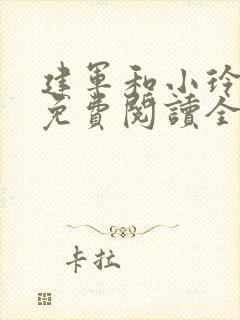 建军和小玲
免費閱讀全
卡拉